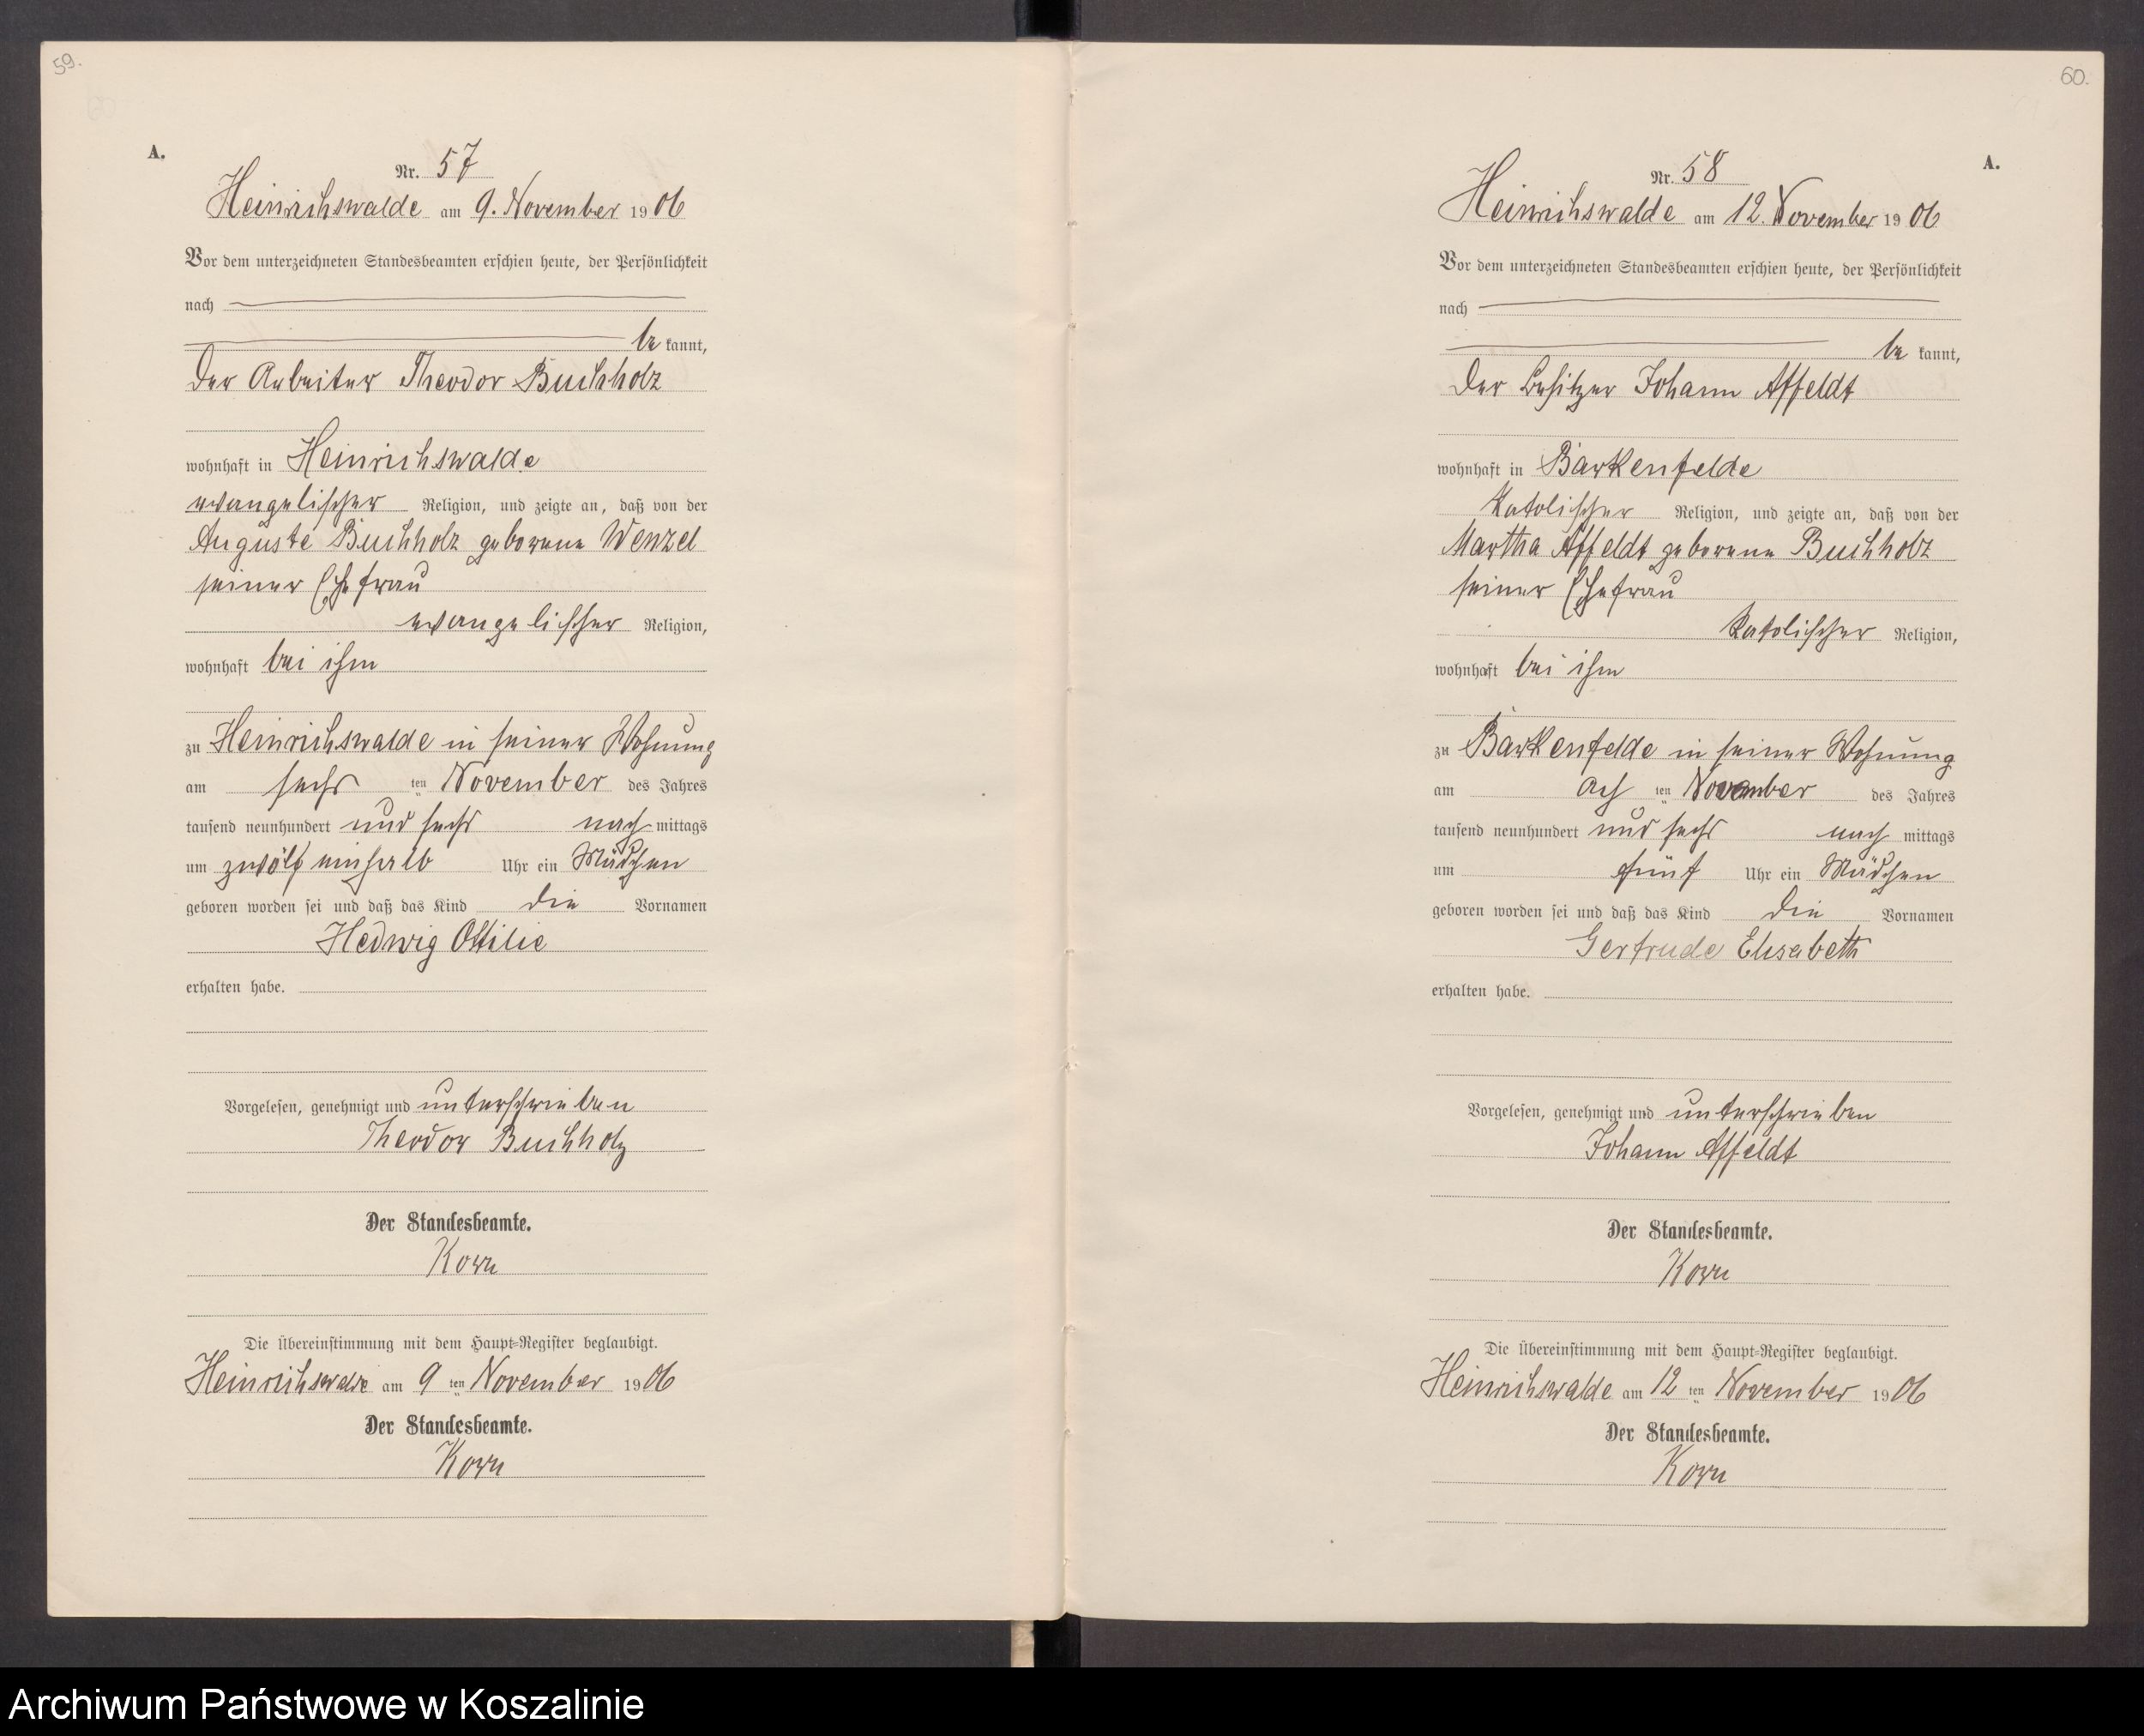 59.
A.
Nr. 57
Heinrichswalde am 9. November 1906
Vor dem unterzeichneten Standesbeamten erschien heute, der Persönlichkeit
nach
be kannt,
der Arbeiter Theodor Buchholz
wohnhaft in Heinrichswalde
evangelischer Religion, und zeigte an, daß von der
Auguste Buchholz geborene Wenzel
seiner Ehefrau
evangelischer Religion,
wohnhaft bei ihm
zu Heinrichswalde in seiner Wohnung
am sechs ten November des Jahres
tausend neunhundert und sechs nach mittags
um zwölf einhalb Uhr ein Mädchen
geboren worden sei und daß das Kind die Vornamen
Hedwig Ottilie
erhalten habe.
Vorgelesen, genehmigt und unterschrieben
Theodor Buchholz
Der Standesbeamte.
Korn
Die Übereinstimmung mit dem Haupt-Register beglaubigt.
Heinrichswalde am 9 ten November 1906
Der Standesbeamte.
Korn
60.
A.
Nr. 58
Heinrichswalde am 12. November 1906
Vor dem unterzeichneten Standesbeamten erschien heute, der Persönlichkeit
nach
be kannt,
der Besitzer Johann Affeldt
wohnhaft in Barkenfelde
katolischer Religion, und zeigte an, daß von der
Martha Affeldt geborene Buchholz
seiner Ehefrau
katolischer Religion,
wohnhaft bei ihm
zu Barkenfelde in seiner Wohnung
am ach ten November des Jahres
tausend neunhundert und sechs nach mittags
um fünf Uhr ein Mädchen
geboren worden sei und daß das Kind die Vornamen
Gertrude Elisabeth
erhalten habe.
Vorgelesen, genehmigt und unterschrieben
Johann Affeldt
Der Standesbeamte.
Korn
Die Übereinstimmung mit dem Haupt-Register beglaubigt.
Heinrichswalde am 12 ten November 1906
Der Standesbeamte.
Korn
Archiwum Państwowe w Koszalinie